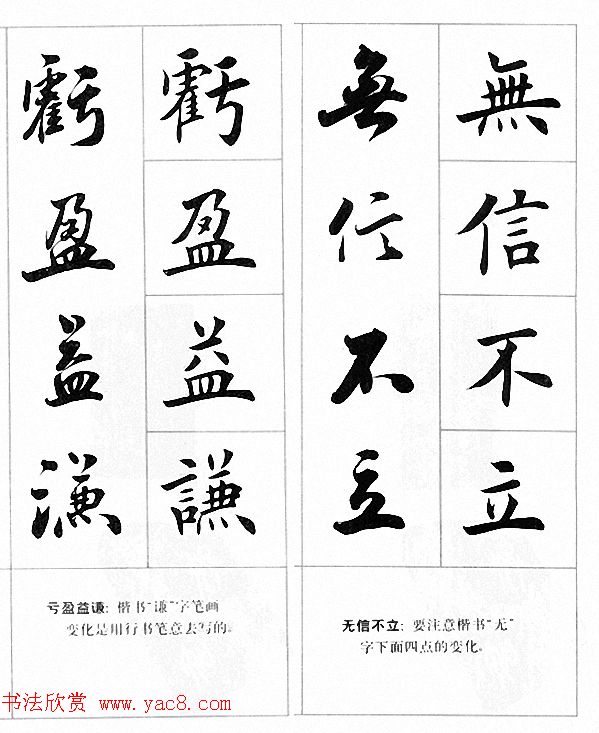 無信不立
無信不立
虧盈益謙
虧盈益謙
无信不立：要注意楷书“无”
字下面四点的变化。
亏盈益谦：楷书“谦”字笔画
变化是用行书笔意去写的。
书法欣赏 www.yac8.com